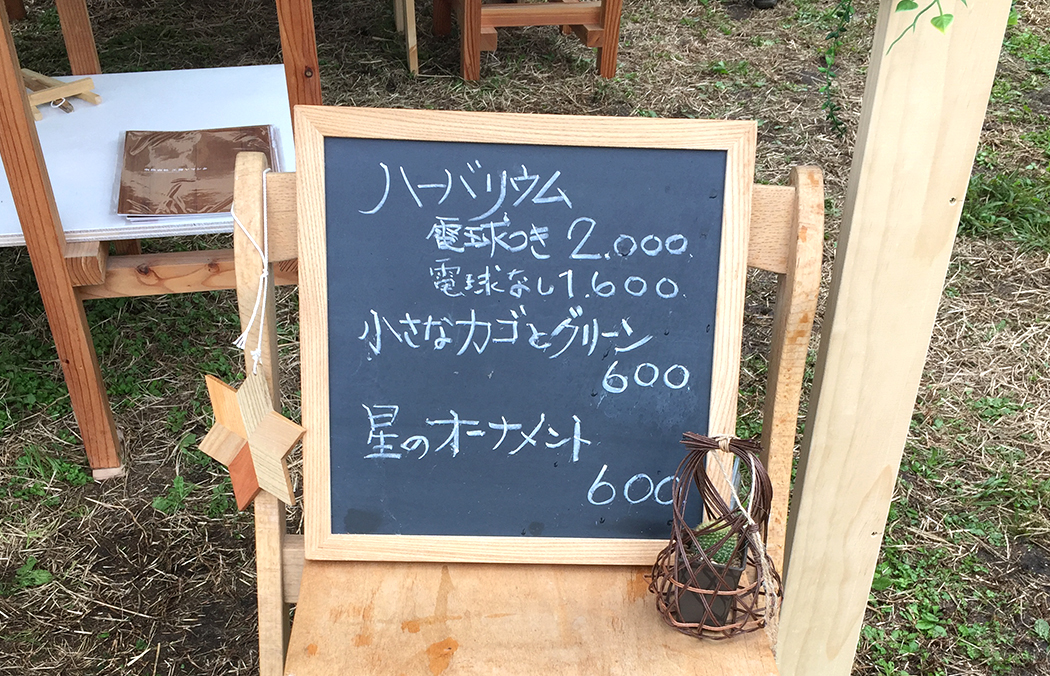 ハーバリウム
電球つき 2.000
電球なし 1.600
小さなカゴとグリーン
600
星のオーナメント
600